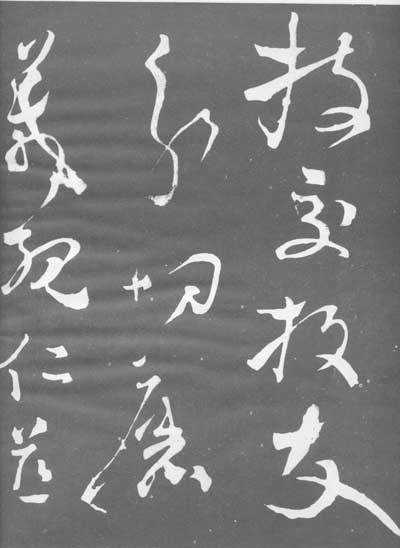 枝交投友
分切磨
箴規仁慈